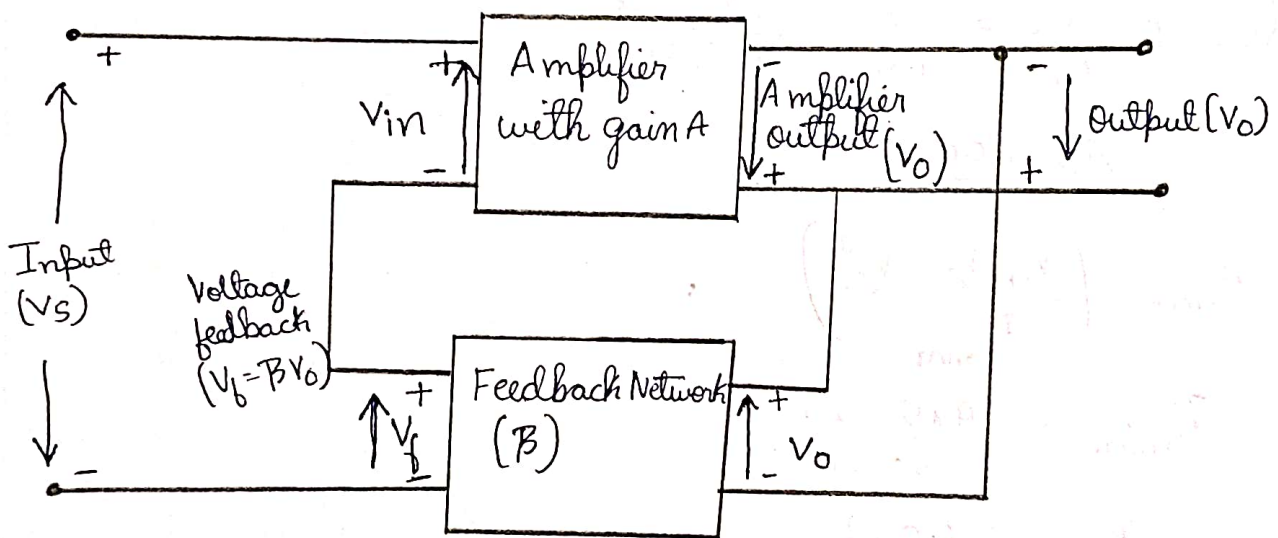 +
+
Amplifier
with gain A
Vin
-
-
Amplifier
output
(Vo)
+
-
Output (Vo)
+
Input
(Vs)
Voltage
feedback
(Vf=βVo)
+
Vf
-
Feedback Network
(β)
+
Vo
-
-